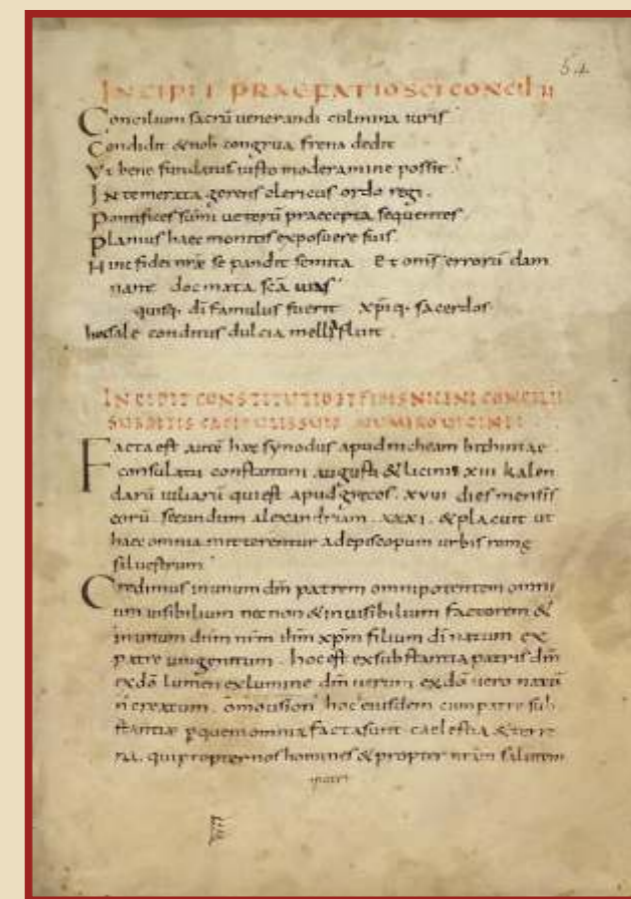 54
INCIPIT PRAEFATIO SCI CONCILII
Concilium sacrũ uenerandi culmina iuris
Condidit & nob congrua frena dedit
Vt bene fundatus iusto moderamine possit
Intemerata gerens clericus ordo regi.
Pontifices sũmi ueterũ praecepta sequentes
Planius haec monitis exposuere suis.
Hinc fidei nr̃ae se pandit semita Et om̃s errorũ dam
nant docmata sc̃a uias
quisq. dĩ famulus fuerit xp̃iq. sacerdos.
hoc sale conditus dulcia mella fluit
INCIPIT CONSTITUTIO ET FIDES NICENI CONCILII
SUBDITIS CAPITULIS SUIS NUMERO UIGINTI
Facta est autẽ haec synodus apud niceam bithiniae
consulatu constantini augusti & licinii xiii kalen
darũ iuliarũ qui est apud grecos. xuiiii dies mensis
eorũ. secundum alexandriam. xxxi. & placuit ut
haec omnia mitterentur ad episcopum urbis rome
siluestrum
Credimus in unum dm̃ patrem omnipotentem omni
um uisibilium necnon & inuisibilium factorem &
in unum dnm̃ nr̃m ihm̃ xp̃m filium dĩ natum ex
patre unigenitum. hoc est ex substantia patris dm̃
ex dõ lumen ex lumine dm̃ uerum ex dõ uero natũ
ñ creatum. omousion hoc eiusdem cum patre sub
stantiae p quem omnia facta sunt caelestia & terre
na. qui propter nos homines & propter nr̃am salutem